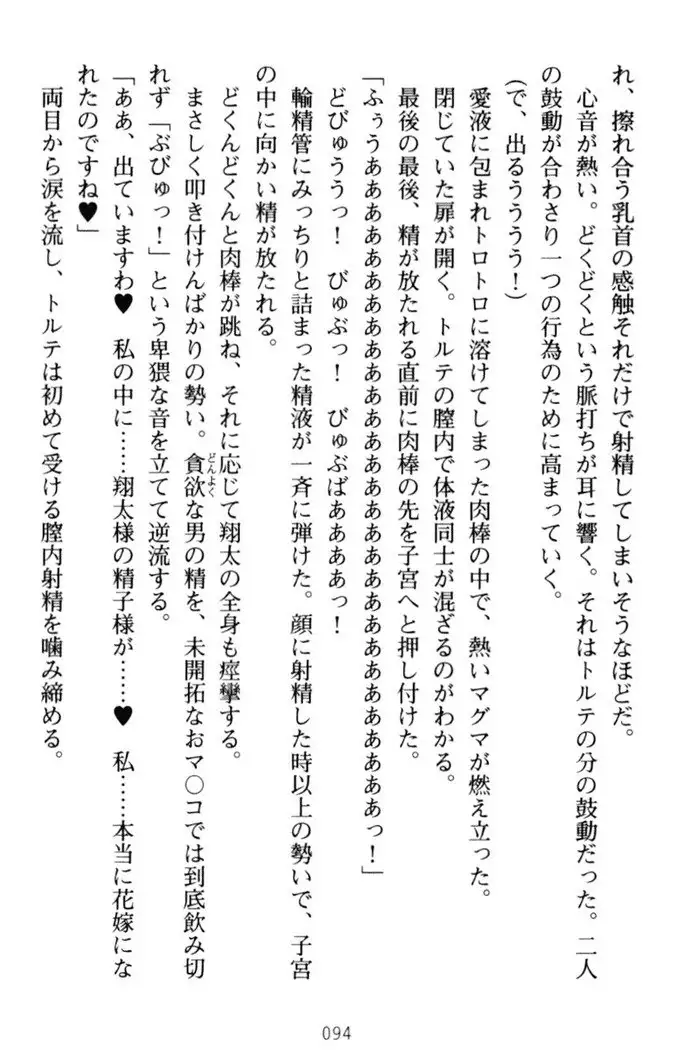 れ、擦れ合う乳首の感触それだけで射精してしまいそうなほどだ。
心音が熱い。どくどくという脈打ちが耳に響く。それはトルテの分の鼓動だった。二人
の鼓動が合わさり一つの行為のために高まっていく。
（で、出るうううう！）
愛液に包まれトロトロに溶けてしまった肉棒の中で、熱いマグマが燃え立った。
閉じていた扉が開く。トルテの膣内で体液同士が混ざるのがわかる。
最後の最後、精が放たれる直前に肉棒の先を子宮へと押し付けた。
「ふぅうあああああああああああああああああああああああああああっ！」
どびゅううっ！　びゅぶっ！　びゅぶばああああっ！
輸精管にみっちりと詰まった精液が一斉に弾けた。顔に射精した時以上の勢いで、子宮
の中に向かい精が放たれる。
どくんどくんと肉棒が跳ね、それに応じて翔太の全身も痙攣する。
まさしく叩き付けんばかりの勢い。貪欲な男の精を、未開拓なおマ○コでは到底飲み切
れず「ぶびゅっ！」という卑猥な音を立てて逆流する。
「ああ、出ていますわ♥　私の中に……翔太様の精子様が……♥　私……本当に花嫁にな
れたのですね♥」
両目から涙を流し、トルテは初めて受ける膣内射精を噛み締める。
094